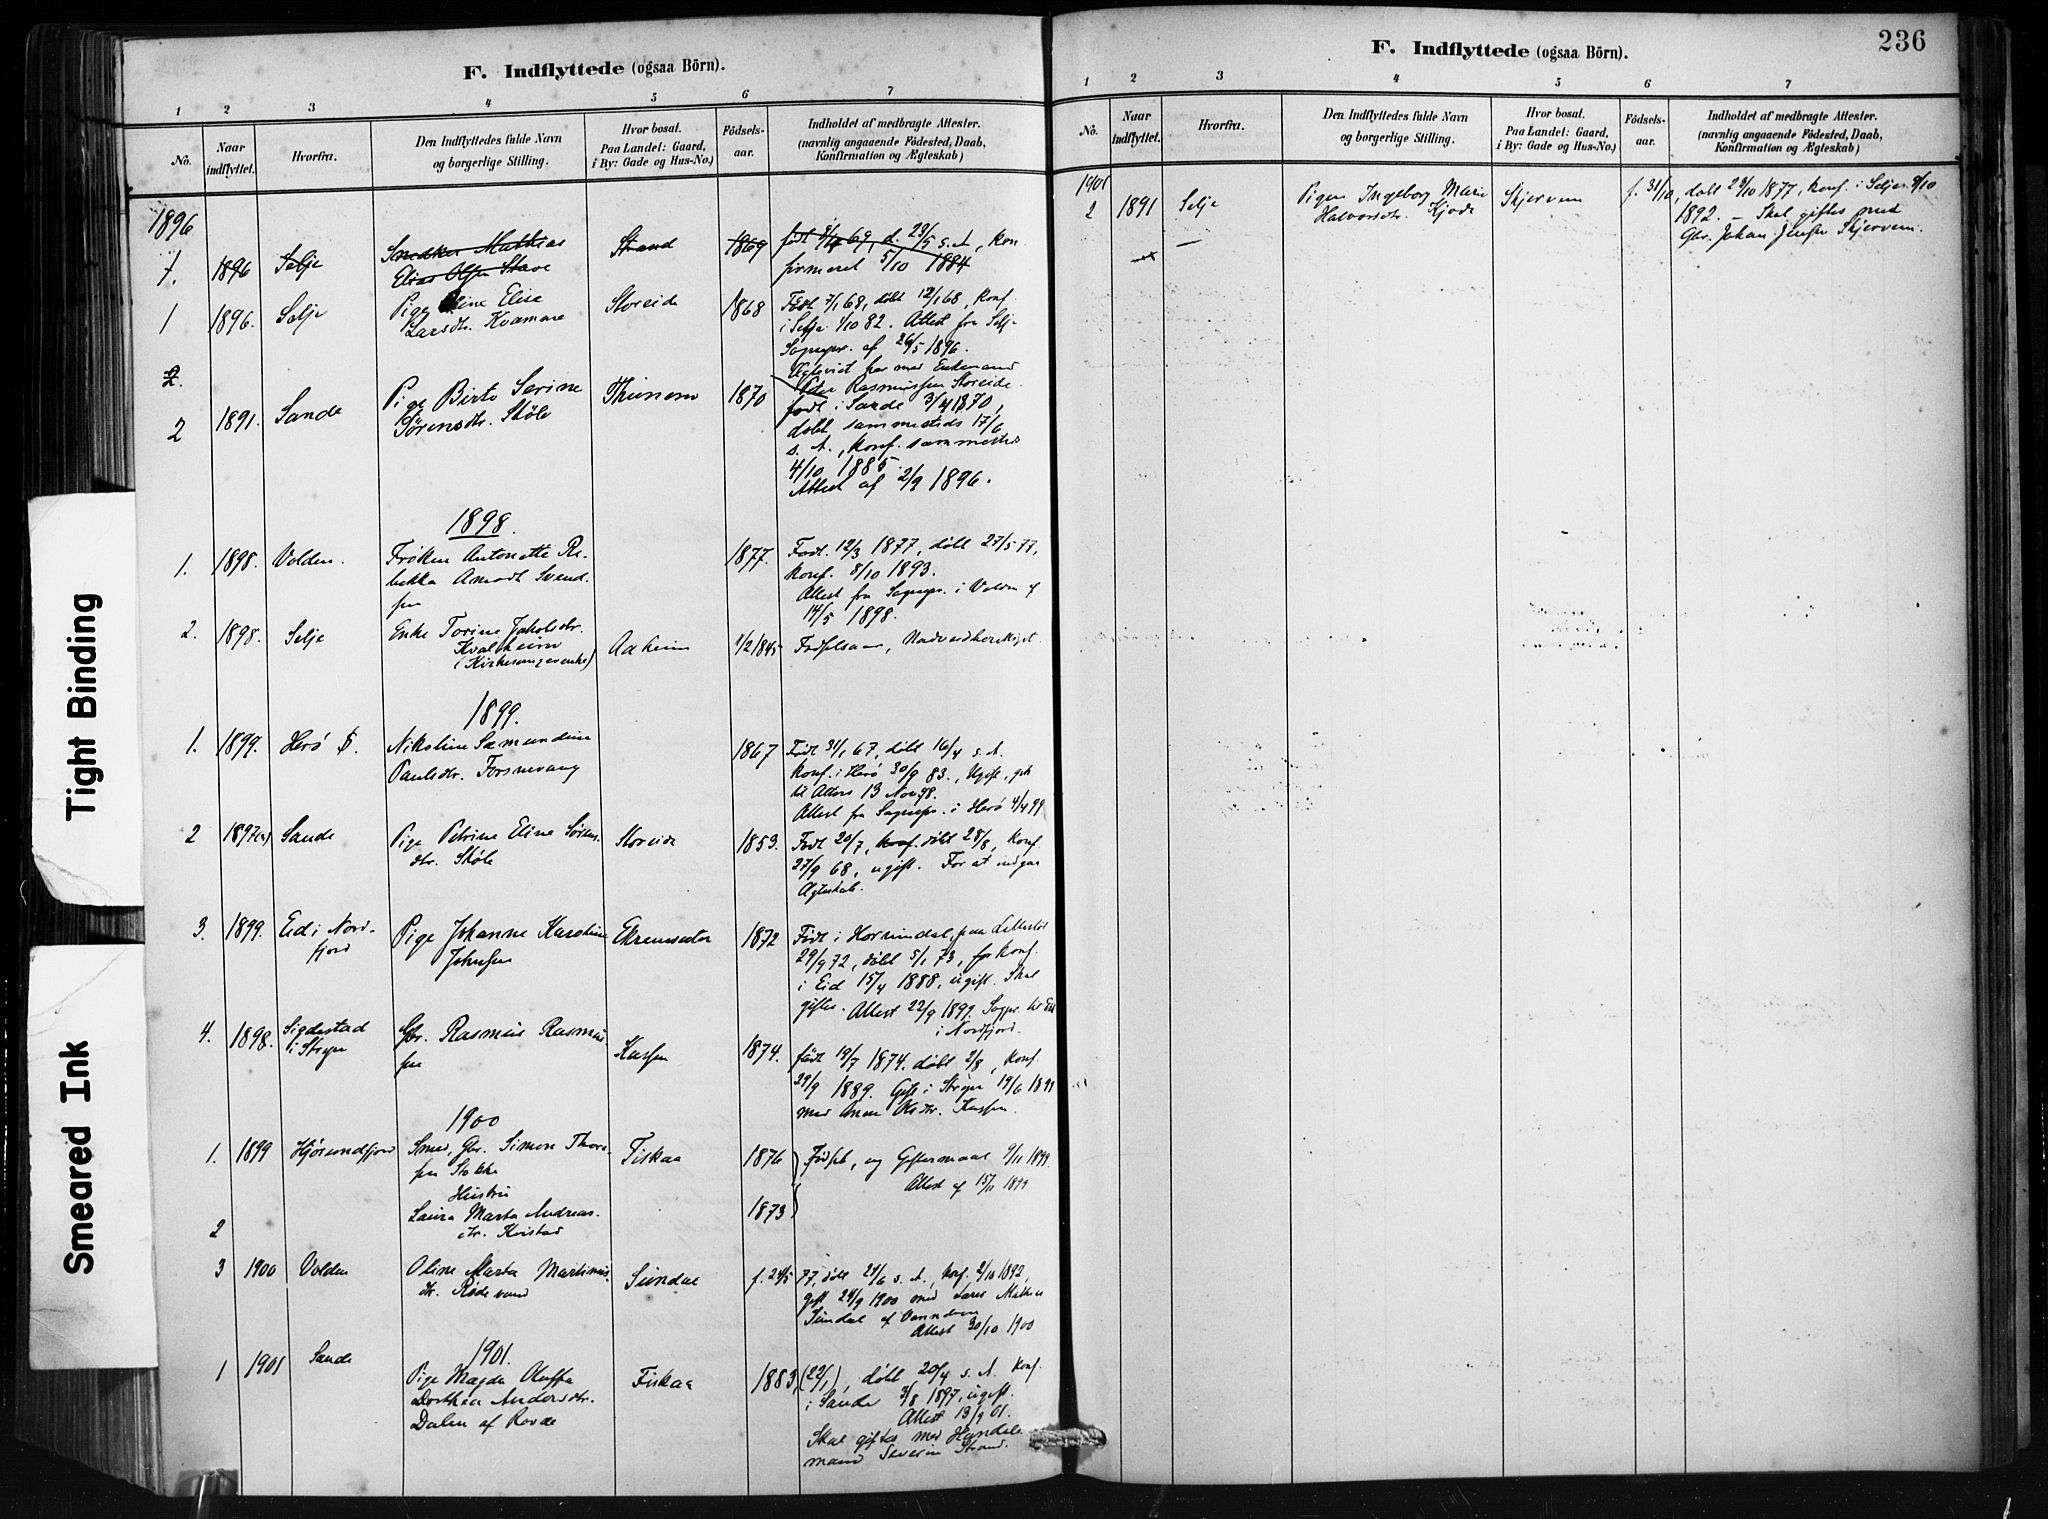 Tight Binding
Smeared Ink
F. Indflyttede (ogsaa Börn).
1 2 3 4 5 6 7
No.
Naar indflyttet.
Hvorfra.
Den Indflyttedes fulde Navn og borgerlige Stilling.
Hvor bosat. Paa Landet: Gaard, i By: Gade og Hus-No.)
Fødsels-aar.
Indholdet af medbragte Attester. (navnlig angaaende Födested, Daab, Konfirmation og Ægteskab)
1896
1. 1896 Selje Snedker Mathias Strand 1869 født 69, d. 23/5 s. A., kon-
Elias Olsen Stave firmeret 5/10 1884
1 1896. Selje Pige Oline Elise Storeide 1868 Født 7/1 68, døbt 12/1 68, Konf.
Larsdtr. Kvamme i Selje 1/10 82. Attest fra Selje
Sognepr. af 26/5 1896.
2. Enkemand
Peter Rasmussen Storeide.
2 1891. Sande Pige Birte Serine 1870 født i Sande 3/4 1870,
Sørensdtr. Skøle døbt sammesteds 17/6
s. A., Konf. sammesteds
4/10 1885.
Attest af 2/9 1896.
1898.
1. 1898. Volden. Frøken Antonette Re- 1877. Født 12/3 1877, døbt 27/5 77,
bekka Amodt Svend- konf. 8/10 1893.
sen Attest fra Sognepr. i Volden af
14/5 1898.
2. 1898. Selje Enke Torine Jakobsdtr. Aaheim 1/2 1845 Fødselsaar,
Kvalheim
(Kirkesangerenke)
1899.
1. 1899. Herø Nikoline Samundine 1867 Født 31/1 67, døbt 16/4 s. A.
Paulsdtr. Konf. i Herø 30/9 83., Ugift, gik
til Alters 13 Nov 98.
Attest fra Sognepr. i Herø 4/4 99
2 1897 Sande Pige Petrine Eline Sørens- Storeide 1853. Født 20/7, døbt 28/8, Konf.
dtr. Skøle 27/9 68, ugift. For at indgaa
Ægteskab.
3. 1899. Eid i Nord- Pige Johanne Karoline Ekremsæter 1872 Født i Hornindal,
fjord Johnsen 29/9 72, døbt 5/1 73, Konf.
i Eid 15/4 1888, ugift. Skal
giftes. Attest 22/9 1897. Sogpr. til Eid
i Nordfjord.
4. 1898. Sigdestad Gbr. Rasmus Rasmus- 1874. født 19/7 1874. døbt 2/8, Konf.
i Stryn sen 29/9 1889. Gift i Stryn 19/6 1899
med Anne Olsdtr.
1900
1. 1899 Hjørundfjord Smed, Gbr. Simon Thore- Fiskaa 1876 Fødsel, og Giftermaal 9/11 1899.
sen Stokke Attest af 15/11 1899
Hustru
2 Laura Marta Andreas- 1873
dtr. Kvistad
3 1900 Volden Oline Marta Martinus- Sundal f. 24/5 77, døbt 24/6 s. A., Konf. 2/10 1892,
dtr. Rødevand gift 24/9 1900 med Lars Mathias
Sundal af Vanndven
Attest 30/10 1900
1901.
1 1901 Sande Pige Magda Oluffa Fiskaa 1883, (22/1), døbt 20/4 s. A. Konf.
Dorthea Andersdtr. i Sande 3/8 1897, ugift.
Dalen af Rovde Attest 13/9 01.
Skal giftes med Handels-
mand Severin Strand.
236
F. Indflyttede (ogsaa Börn).
1 2 3 4 5 6 7
No.
Naar indflyttet.
Hvorfra.
Den Indflyttedes fulde Navn og borgerlige Stilling.
Hvor bosat. Paa Landet: Gaard, i By: Gade og Hus-No.)
Födsels-aar.
Indholdet af medbragte Attester. (navnlig angaaende Födested, Daab, Konfirmation og Ægteskab)
1901
2 1891 Selje Pigen Ingeborg Marie Skjervem f. 31/10, døbt 29/10 1877, konf. i Selje 9/10
Halvorsdtr. Kjøde 1892. – Skal giftes med
Gbr. Johan Jensen Skjervem.